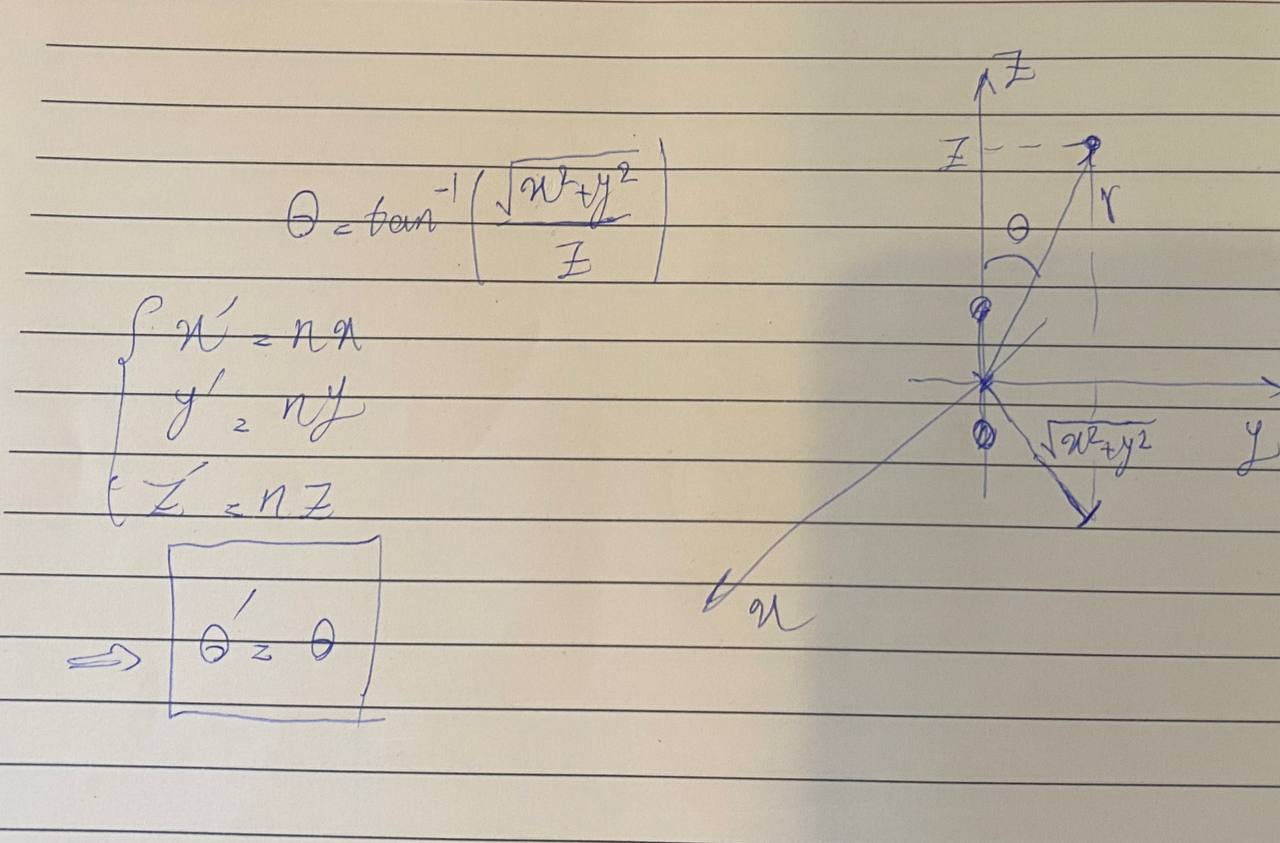 θ = tan⁻¹(√(x²+y²) / z)
x' = nx
y' = ny
z' = nz
⇒ θ' = θ
z
z
r
θ
√(x²+y²)
y
x